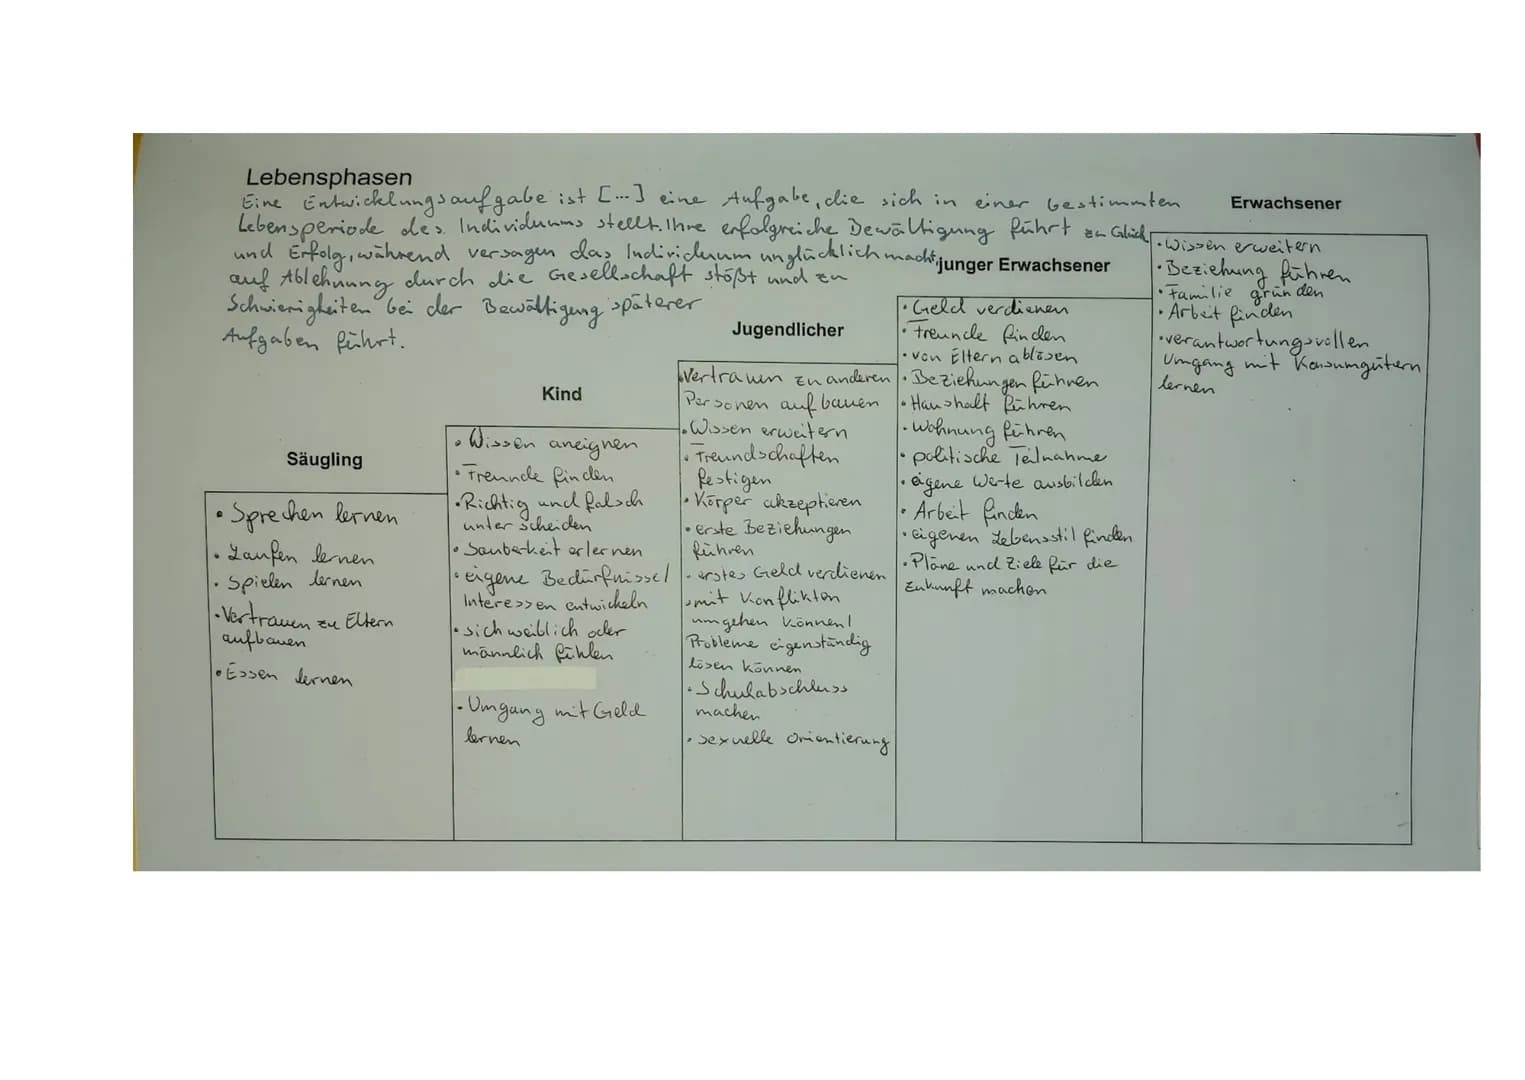 Lebensphasen
Eine Entwicklungsaufgabe ist [...] eine Aufgabe, die sich in einer bestimmten
Lebensperiode des Individuums stellt. Ihre erfolgreiche Bewältigung führt zu Glück
und Erfolg, während versagen das Individuum unglücklich macht,
auf Ablehnung durch die Gesellschaft stößt und zu
Schwierigkeiten bei der Bewältigung späterer
Aufgaben führt.
Säugling
• Sprechen lernen
• Laufen lernen
• Spielen lernen
• Vertrauen zu Eltern
aufbauen
• Essen lernen
Kind
• Wissen aneignen
• Freunde finden
• Richtig und falsch
unterscheiden
• Sauberkeit erlernen
• eigene Bedürfnisse/
Interessen entwickeln
• sich weiblich oder
männlich fühlen
• Umgang mit Geld
lernen
Jugendlicher
• Vertrauen zu anderen
Personen aufbauen
• Wissen erweitern
• Freundschaften
festigen
• Körper akzeptieren
• erste Beziehungen
führen
• erstes Geld verdienen
• mit Konflikten
umgehen können/
Probleme eigenständig
lösen können
• Schulabschluss
machen
• sexuelle Orientierung
junger Erwachsener
• Geld verdienen
• Freunde finden
• von Eltern ablösen
• Beziehungen führen
• Haushalt führen
• Wohnung führen
• politische Teilnahme
• eigene Werte ausbilden
• Arbeit finden
• eigenen Lebensstil finden
• Pläne und Ziele für die
Zukunft machen
Erwachsener
• Wissen erweitern
• Beziehung führen
• Familie gründen
• Arbeit finden
• verantwortungsvollen
Umgang mit Konsumgütern
lernen